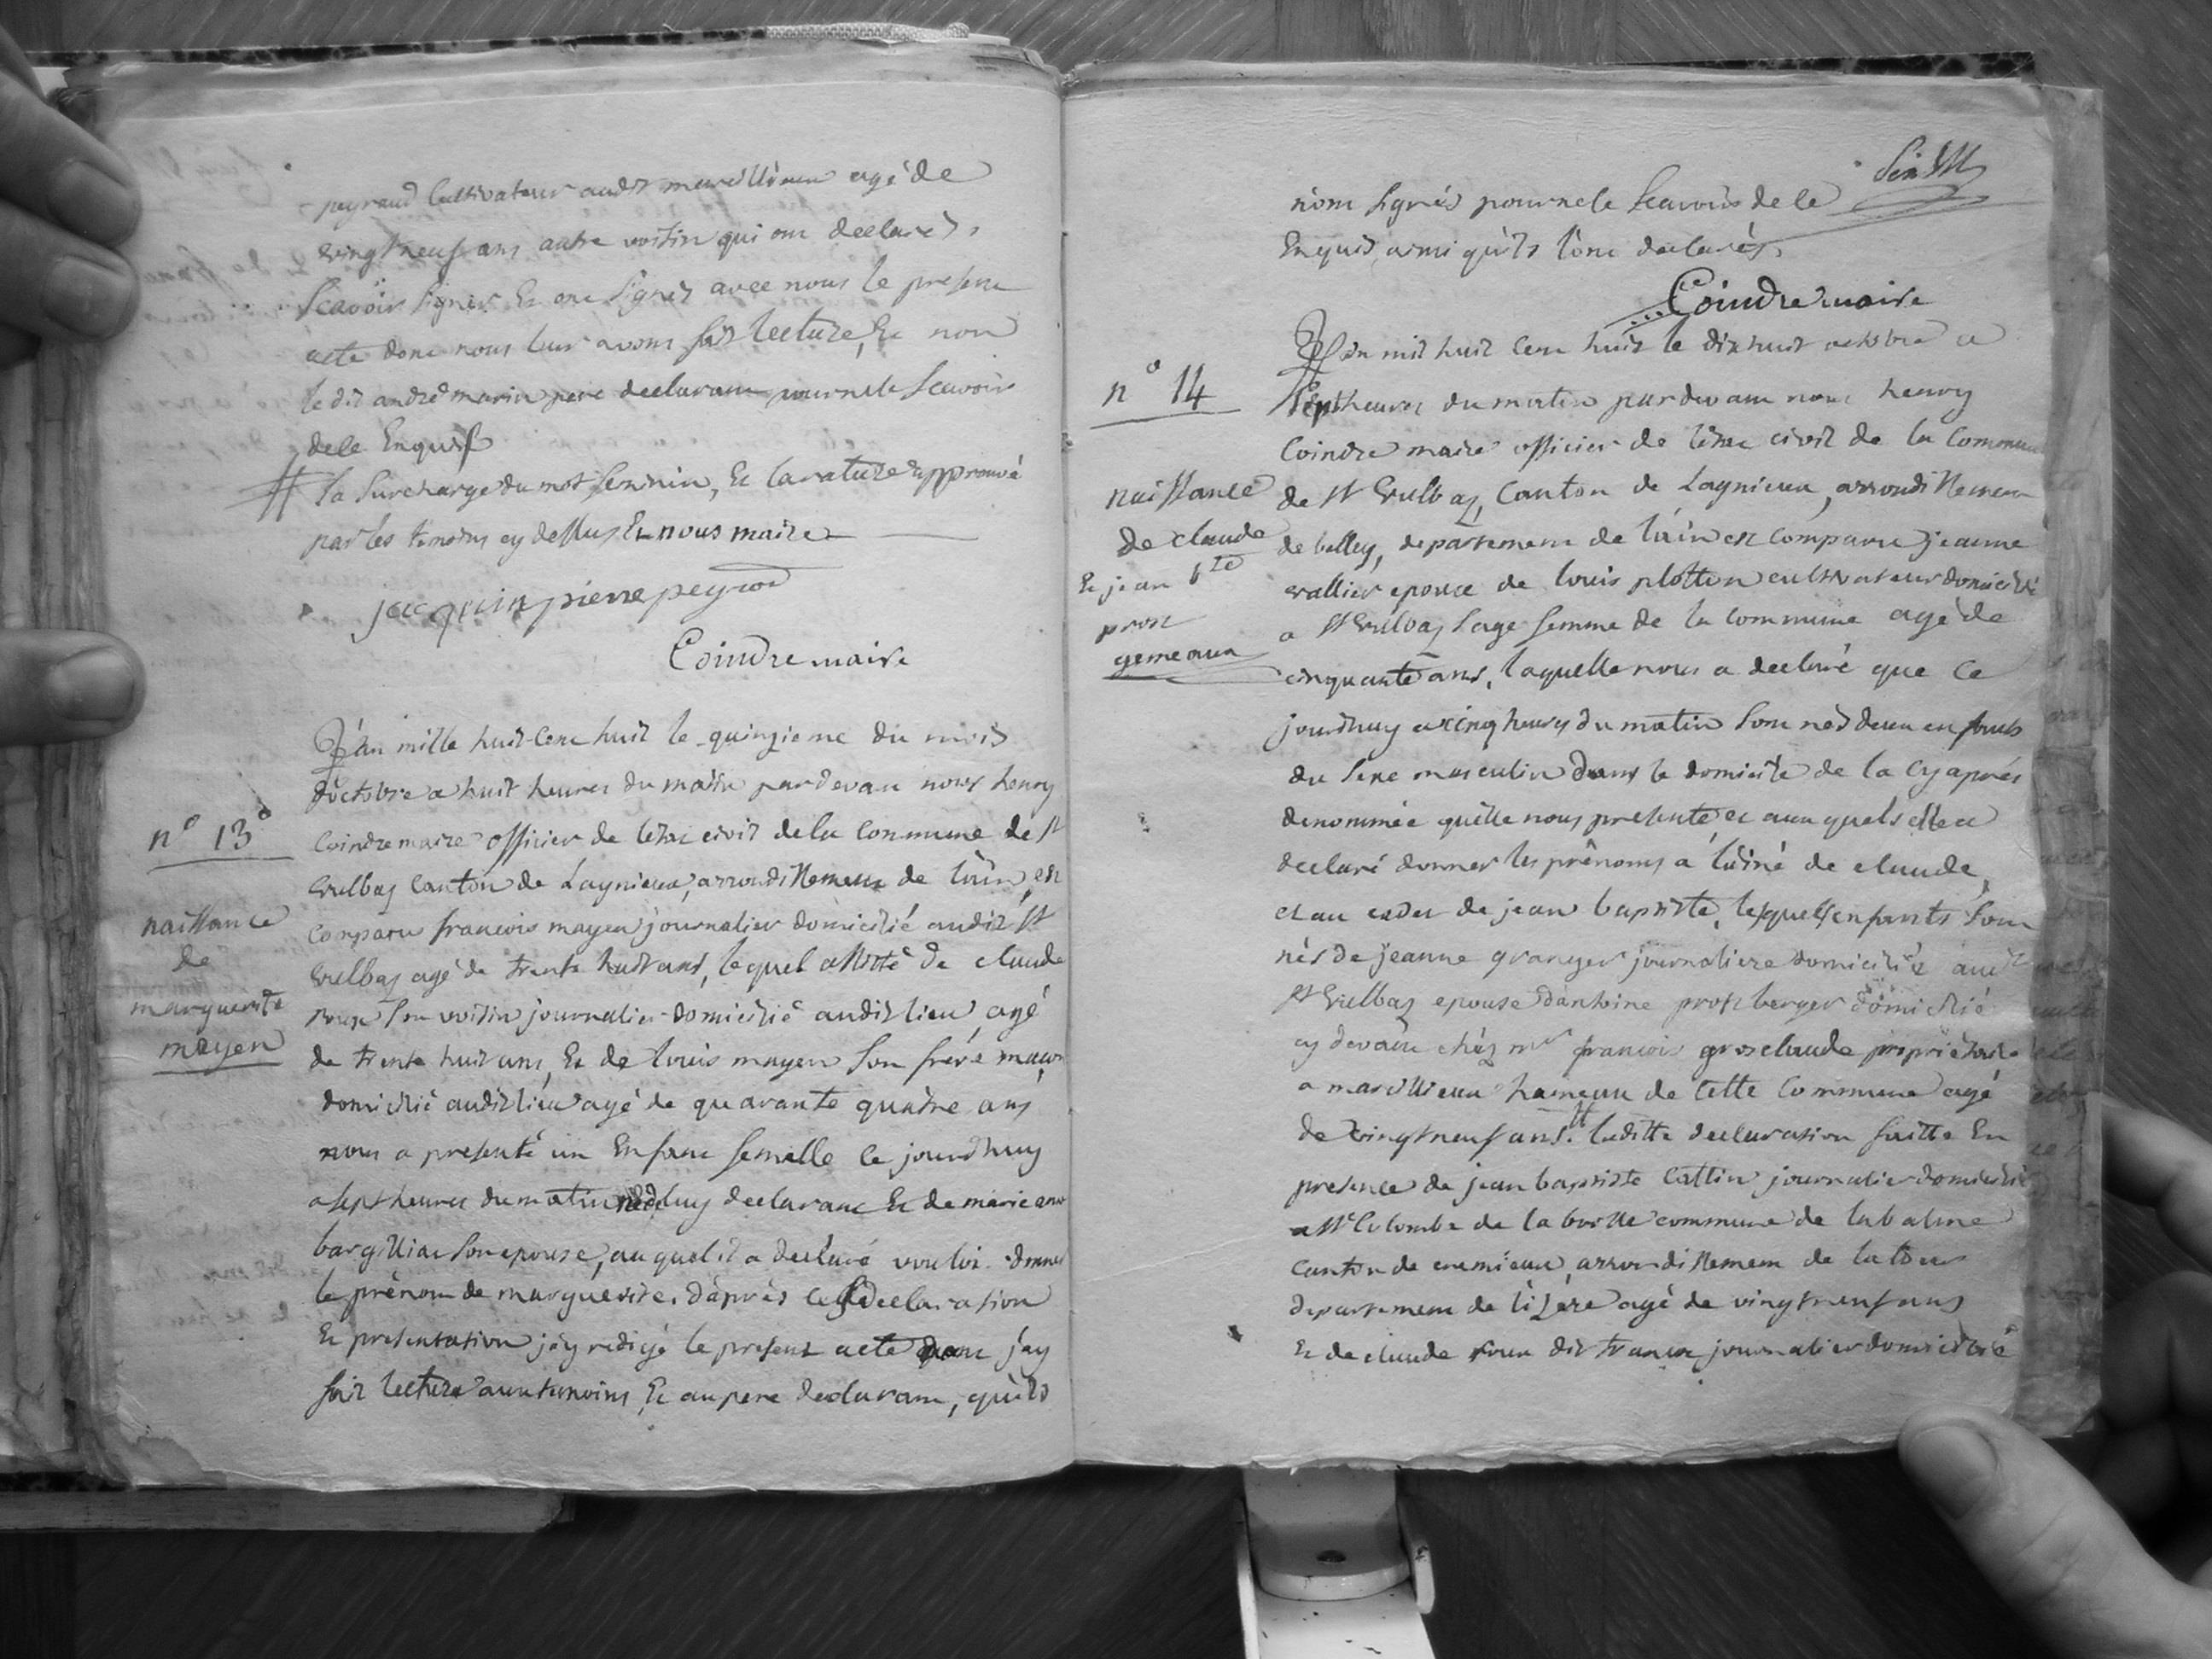 peyraud Cultivateur audit marcillieux agé de
vingt neuf ans autre voisin qui ont declarés
Scavoir signer Et ont Signés avec nous le present
acte dont nous leur avons fait lecture, Et non
le dit andré marin pere declarant pour ne le Scavoir
de le Enquis
# la Surcharge du mot feminin, Et la rature approuvé
par les temoins cy dessus Et nous maire
jacquin pierre peyrod
Coindre maire
L'an mille huit Cent huit le quinzieme du mois
d'octobre a huit heures du matin pardevant nous henry
Coindre maire officier de letat civil de la Commune de St
Vulbas Canton de Lagnieux, arrondissement de l'ain, est
Comparu francois mayen journalier domicilié audit St
Vulbas agé de trente huit ans, lequel assisté de claude
roux Son voisin journalier domicilié audit lieu agé
de trente huit ans, Et de louis mayen Son frere maçon
domicilié audit lieu agé de quarante quatre ans
nous a presenté un Enfant femelle Ce jourdhuy
a sept heures du matin né de luy declarant Et de marie
Son epouse, auquel il a declaré vouloir donner
le prénom de marguerite. d'après Ces declaration
Et presentation j'ay redigé le present acte dont j'ay
fait lecture aux temoins Et au pere declarant, qu'ils
n° 13
naissance
de
marguerite
mayen
nom signés pour ne le Scavoir de le
Enquis, ainsi qu'ils l'ont declarés.
Coindre maire
L'an mil huit Cent huit le dix huit octobre a
Sept heures du matin pardevant nous henry
Coindre maire officier de létat civil de la Commune
de St Vulbas, Canton de Lagnieux, arrondissement
de belley, departement de l'ain est Comparu jeanne
vallier epouse de louis plottin cultivateur domicilié
a St Vulbas Sage femme de la Commune agé de
cinquante ans, laquelle nous a declaré que Ce
jourdhuy a cinq heures du matin Sont nés deux enfants
du Sexe masculin dans le domicile de la Cy après
denommée qu'elle nous presente et aux quels elle a
declaré donner les prénoms a l'ainé de claude,
et au cadet de jean baptiste, lesquels enfants Sont
nés de jeanne granger journaliere domiciliée audit
St Vulbas epouse d'antoine prost berger domicilié
cy devant chéz mr francois grosclaude propriétaire
a marcillieux hameau de Cette Commune agé
de vingt neuf ans. # laditte declaration faitte En
presence de jean baptiste Cattin journalier domicilié
a Ste Colombe de la commune de la balme
Canton de cremieux, arrondissement de la tour
departement de l'isere agé de vingt neuf ans
Et de claude roux dit journalier domicilié
n° 14
naissance
de claude
Et jean bte
prost
gemeaux